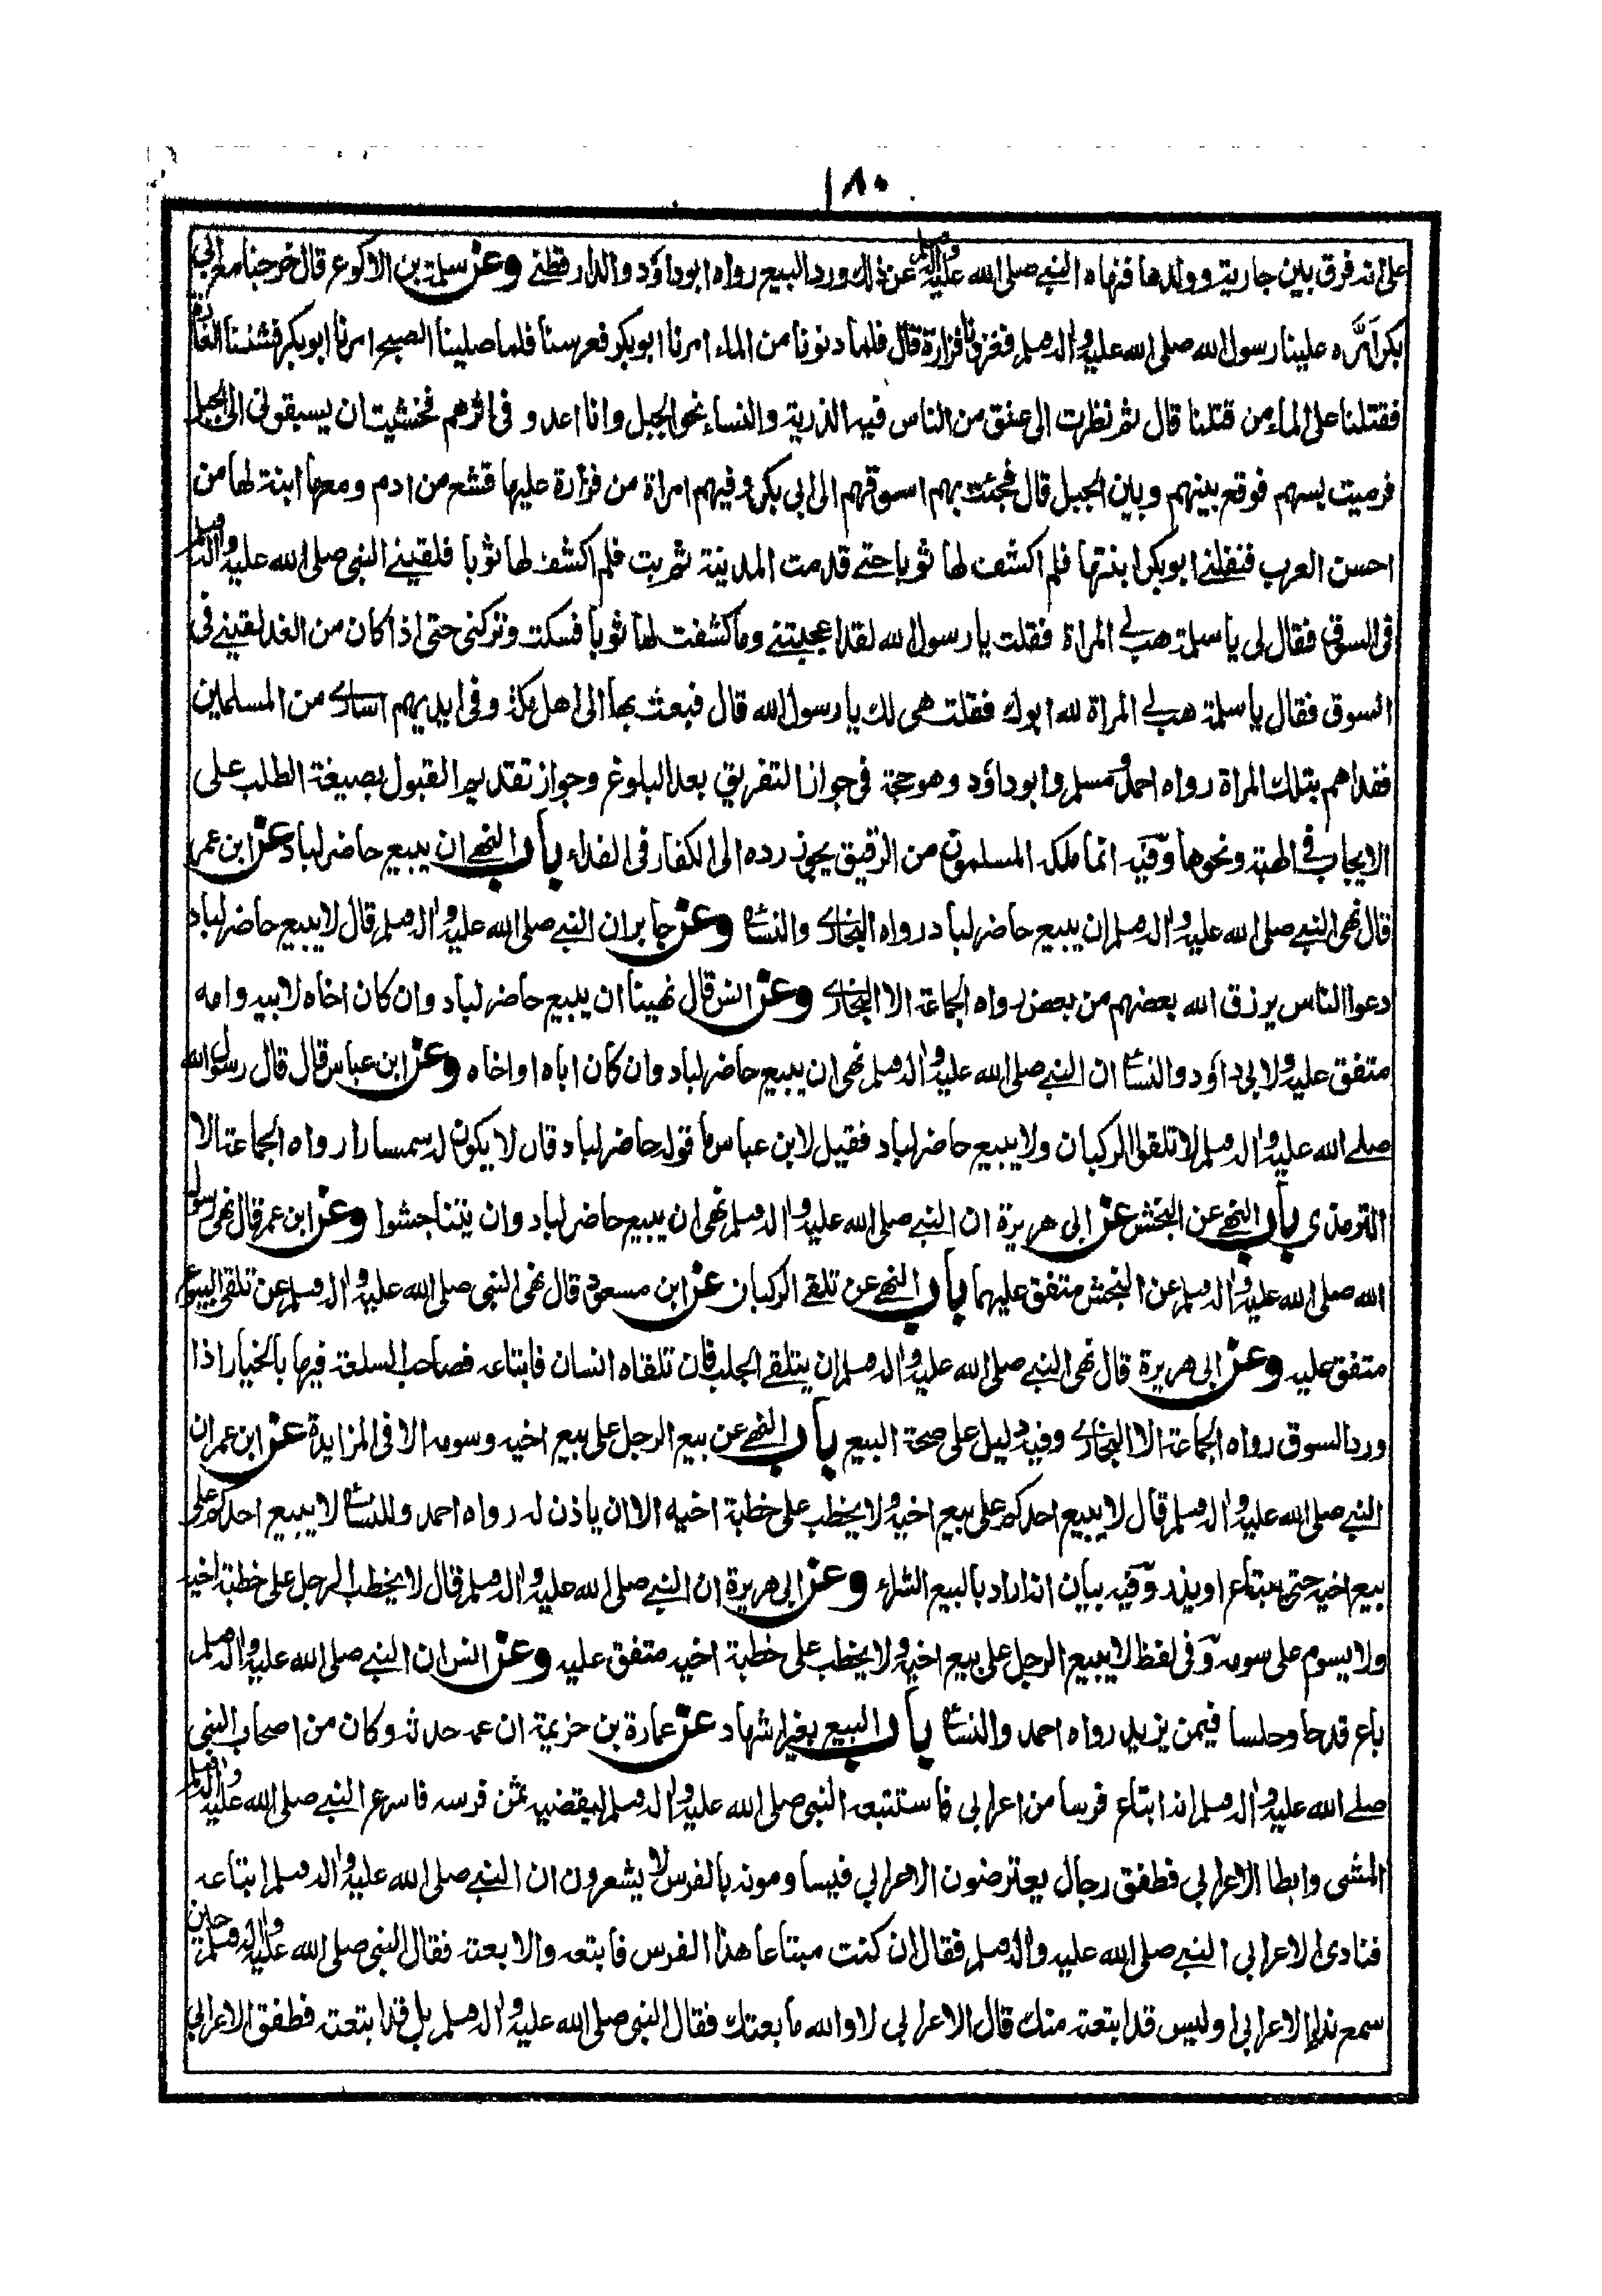 ١٨٠
على انه فرق بين جارية وولدها فنهاه النبي صلى الله عليه واله وسلم عن ذلك ورد البيع رواه ابوداؤد والدارقطني وعن سلمة بن الاكوع قال خرجنا مع ابي
بكر امّره علينا رسول الله صلى الله عليه واله وسلم فغزونا فزارة قال فلما دنونا من الماء امرنا ابوبكر فعرسنا فلما صلينا الصبح امرنا ابوبكر فشننا الغارة
فقتلنا على الماء من قتلنا قال ثم نظرت الى عنق من الناس فيه الذرية والنساء نحو الجبل وانا اعدو في اثرهم فخشيت ان يسبقوني الى الجبل
فرميت بسهم فوقع بينهم وبين الجبل قال فجئت بهم اسوقهم الى ابي بكر وفيهم امراة من فزارة عليها قشع من ادم ومعها ابنة لها من
احسن العرب فنفلني ابوبكر ابنتها فلم اكشف لها ثوبا حتى قدمت المدينة ثم بت فلم اكشف لها ثوبا فلقيني النبي صلى الله عليه واله وسلم
في السوق فقال لي يا سلمة هب لي المراة فقلت يا رسول الله لقد اعجبتني وما كشفت لها ثوبا فسكت وتركني حتى اذا كان من الغد لقيني في
السوق فقال يا سلمة هب لي المراة لله ابوك فقلت هي لك يا رسول الله قال فبعث بها الى اهل مكة وفي ايديهم اسارى من المسلمين
ففداهم بتلك المراة رواه احمد ومسلم وابوداؤد وهو حجة في جواز التفريق بعد البلوغ وجواز تقديم القبول بصيغة الطلب على
الايجاب في الهبة ونحوها وفيه انما ملكه المسلمون من الرقيق يجوز رده الى الكفار في الفداء باب النهي ان يبيع حاضر لباد عن ابن عمر
قال نهى النبي صلى الله عليه واله وسلم ان يبيع حاضر لباد رواه البخاري والنسائي وعن جابر ان النبي صلى الله عليه واله وسلم قال لا يبيع حاضر لباد
دعوا الناس يرزق الله بعضهم من بعض رواه الجماعة الا البخاري وعن انس قال نهينا ان يبيع حاضر لباد وان كان اخاه لابيه وامه
متفق عليه ولابي داؤد والنسائي ان النبي صلى الله عليه واله وسلم نهى ان يبيع حاضر لباد وان كان اباه او اخاه وعن ابن عباس قال قال رسول الله
صلى الله عليه واله وسلم لا تلقوا الركبان ولا يبيع حاضر لباد فقيل لابن عباس ما قوله حاضر لباد قال لا يكون له سمسارا رواه الجماعة الا
الترمذي باب النهي عن النجش عن ابي هريرة ان النبي صلى الله عليه واله وسلم نهى ان يبيع حاضر لباد وان يتناجشوا وعن ابن عمر قال نهى رسول
الله صلى الله عليه واله وسلم عن النجش متفق عليهما باب النهي عن تلقي الركبان عن ابن مسعود قال نهى النبي صلى الله عليه واله وسلم عن تلقي البيوع
متفق عليه وعن ابي هريرة قال نهى النبي صلى الله عليه واله وسلم ان يتلقى الجلب فان تلقاه انسان فابتاعه فصاحب السلعة فيها بالخيار اذا
ورد السوق رواه الجماعة الا البخاري وفيه دليل على صحة البيع باب النهي عن بيع الرجل على بيع اخيه وسومه الا في المزايدة عن ابن عمر ان
النبي صلى الله عليه واله وسلم قال لا يبيع احدكم على بيع اخيه ولا يخطب على خطبة اخيه الا ان ياذن له رواه احمد وللنسائي لا يبيع احدكم على
بيع اخيه حتى يبتاع او يذر وفيه بيان انه اراد بالبيع الشراء وعن ابي هريرة ان النبي صلى الله عليه واله وسلم قال لا يخطب الرجل على خطبة اخيه
ولا يسوم على سومه وفي لفظ لا يبيع الرجل على بيع اخيه ولا يخطب على خطبة اخيه متفق عليه وعن انس ان النبي صلى الله عليه واله وسلم
باع قدحا وحلسا فيمن يزيد رواه احمد والنسائي باب البيع بغير اشهاد عن عمارة بن خزيمة ان عمه حدثه وكان من اصحاب النبي
صلى الله عليه واله وسلم انه ابتاع فرسا من اعرابي فاستتبعه النبي صلى الله عليه واله وسلم ليقضيه ثمن فرسه فاسرع النبي صلى الله عليه واله وسلم
المشي وابطا الاعرابي فطفق رجال يعترضون الاعرابي فيساومونه بالفرس لا يشعرون ان النبي صلى الله عليه واله وسلم ابتاعه
فنادى الاعرابي النبي صلى الله عليه واله وسلم فقال ان كنت مبتاعا هذا الفرس فابتعه والا بعته فقال النبي صلى الله عليه واله وسلم حين
سمع نداء الاعرابي اوليس قد ابتعته منك قال الاعرابي لا والله ما بعتك فقال النبي صلى الله عليه واله وسلم بل قد ابتعته فطفق الاعرابي